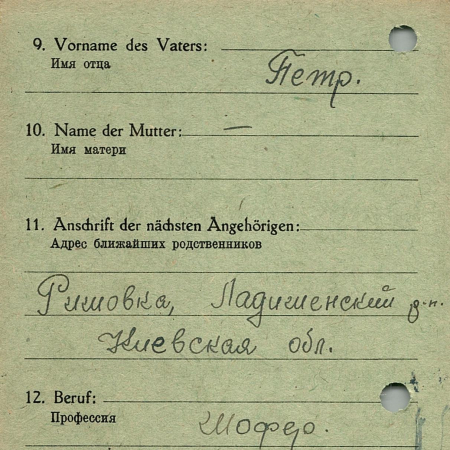 9. Vorname des Vaters:
Имя отца
Петр.
10. Name der Mutter: —
Имя матери
11. Anschrift der nächsten Angehörigen:
Адрес ближайших родственников
Римовка, Ладиженский р-н.
Киевская обл.
12. Beruf:
Профессия
Шофер.